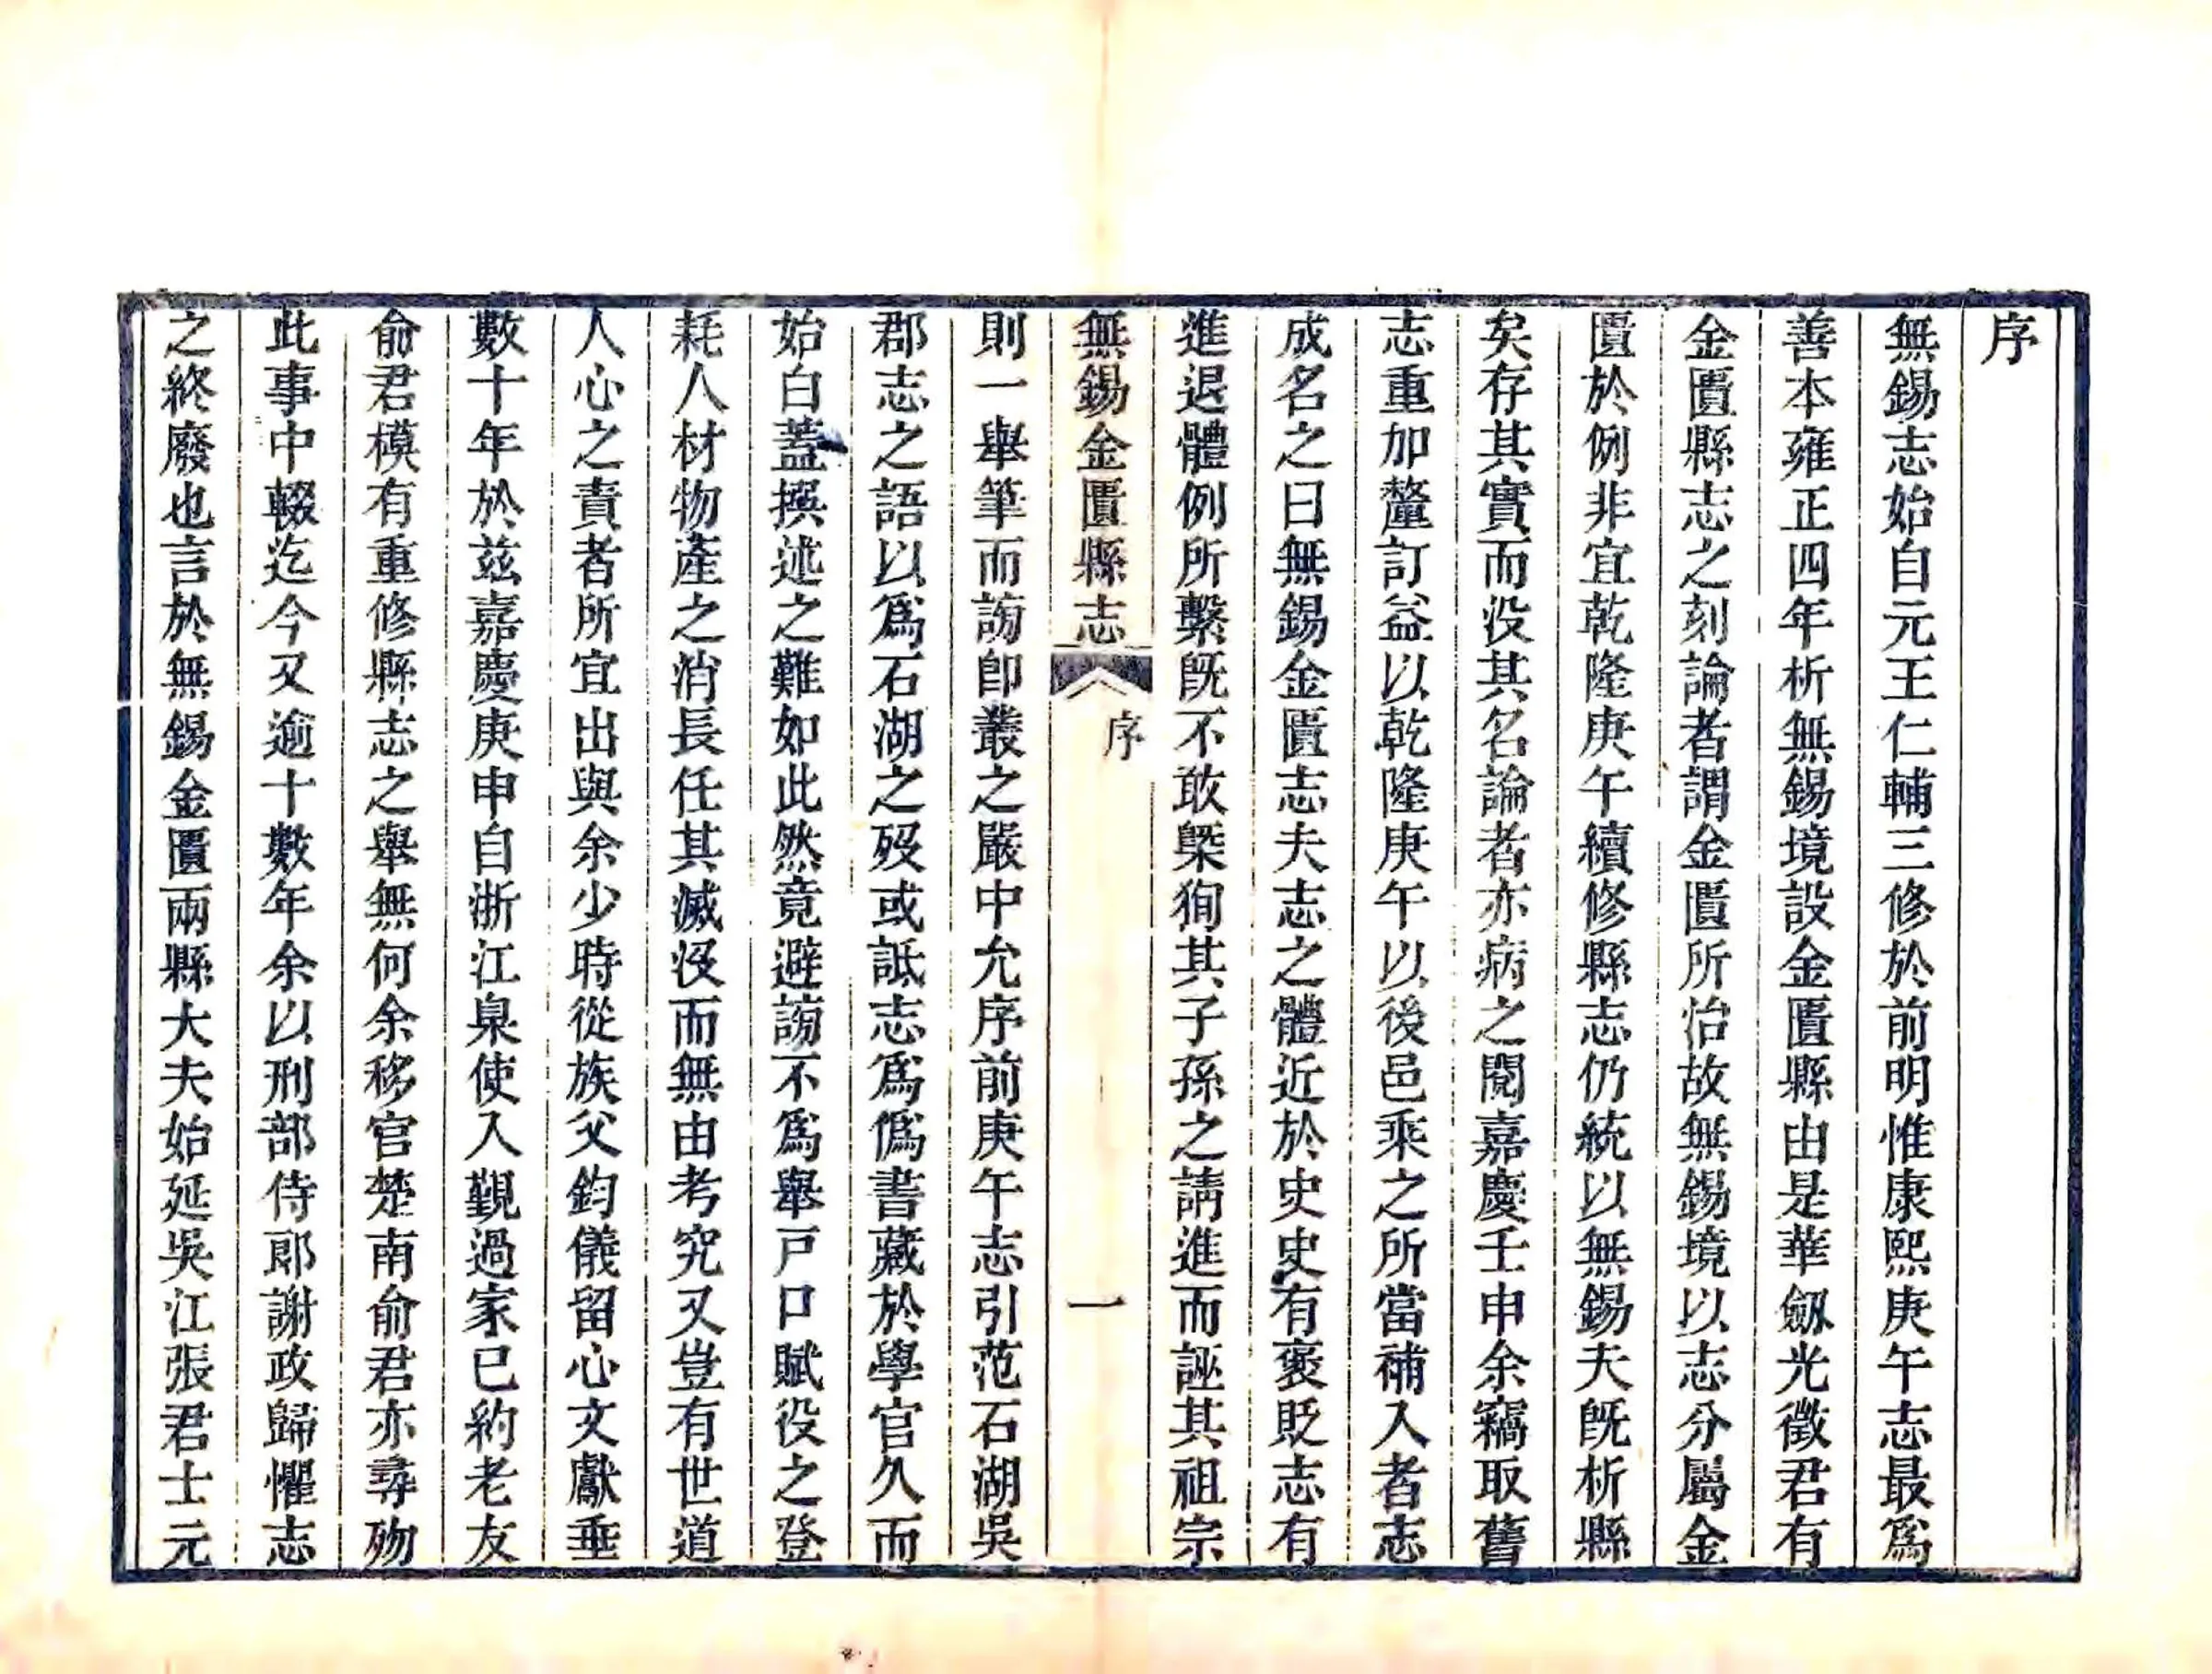 序
無錫志始自元王仁輔三修於前明惟康熙庚午志最爲
善本雍正四年析無錫境設金匱縣由是華劒光徵君有
金匱縣志之刻論者謂金匱所治故無錫境以志分屬金
匱於例非宜乾隆庚午續修縣志仍統以無錫夫既析縣
矣存其實而没其名論者亦病之閱嘉慶壬申余竊取舊
志重加釐訂益以乾隆庚午以後邑乘之所當補入者志
成名之曰無錫金匱志夫志之體近於史史有褒貶志有
進退體例所繫既不敢槩狥其子孫之請進而誣其祖宗
無錫金匱縣志
序
一
則一舉筆而謗卽叢之嚴中允序前庚午志引范石湖吳
郡志之語以爲石湖之歿或詆志爲僞書藏於學官久而
始白蓋撰述之難如此然竟避謗不爲舉戸口賦役之登
耗人材物產之消長任其滅沒而無由考究又豈有世道
人心之責者所宜出與余少時從族父鈞儀留心文獻垂
數十年於兹嘉慶庚申自浙江臬使入覲過家已約老友
俞君模有重修縣志之舉無何余移官楚南俞君亦尋歾
此事中輟迄今又逾十數年余以刑部侍郎謝政歸懼志
之終廢也言於無錫金匱兩縣大夫始延吳江張君士元